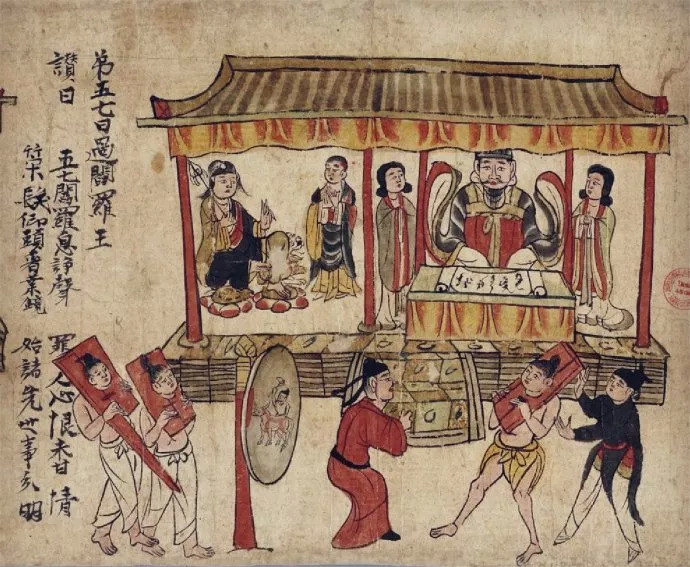 苐五七日過閻羅王
讚曰 五七閻羅息諍聲 罪人心恨未甘情
策髮仰頭看業鏡 始諸先世事分明